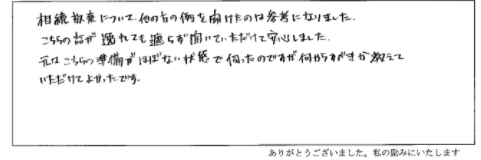 相続放棄について、他の方の例を聞けたのは参考になりました。
こちらの話が逸れても遮らず聞いていただけて安心しました。
元々こちらの準備がほぼない状態で伺ったのですが何からすべきか教えて
いただけてよかったです。
ありがとうございました。私の励みにいたします